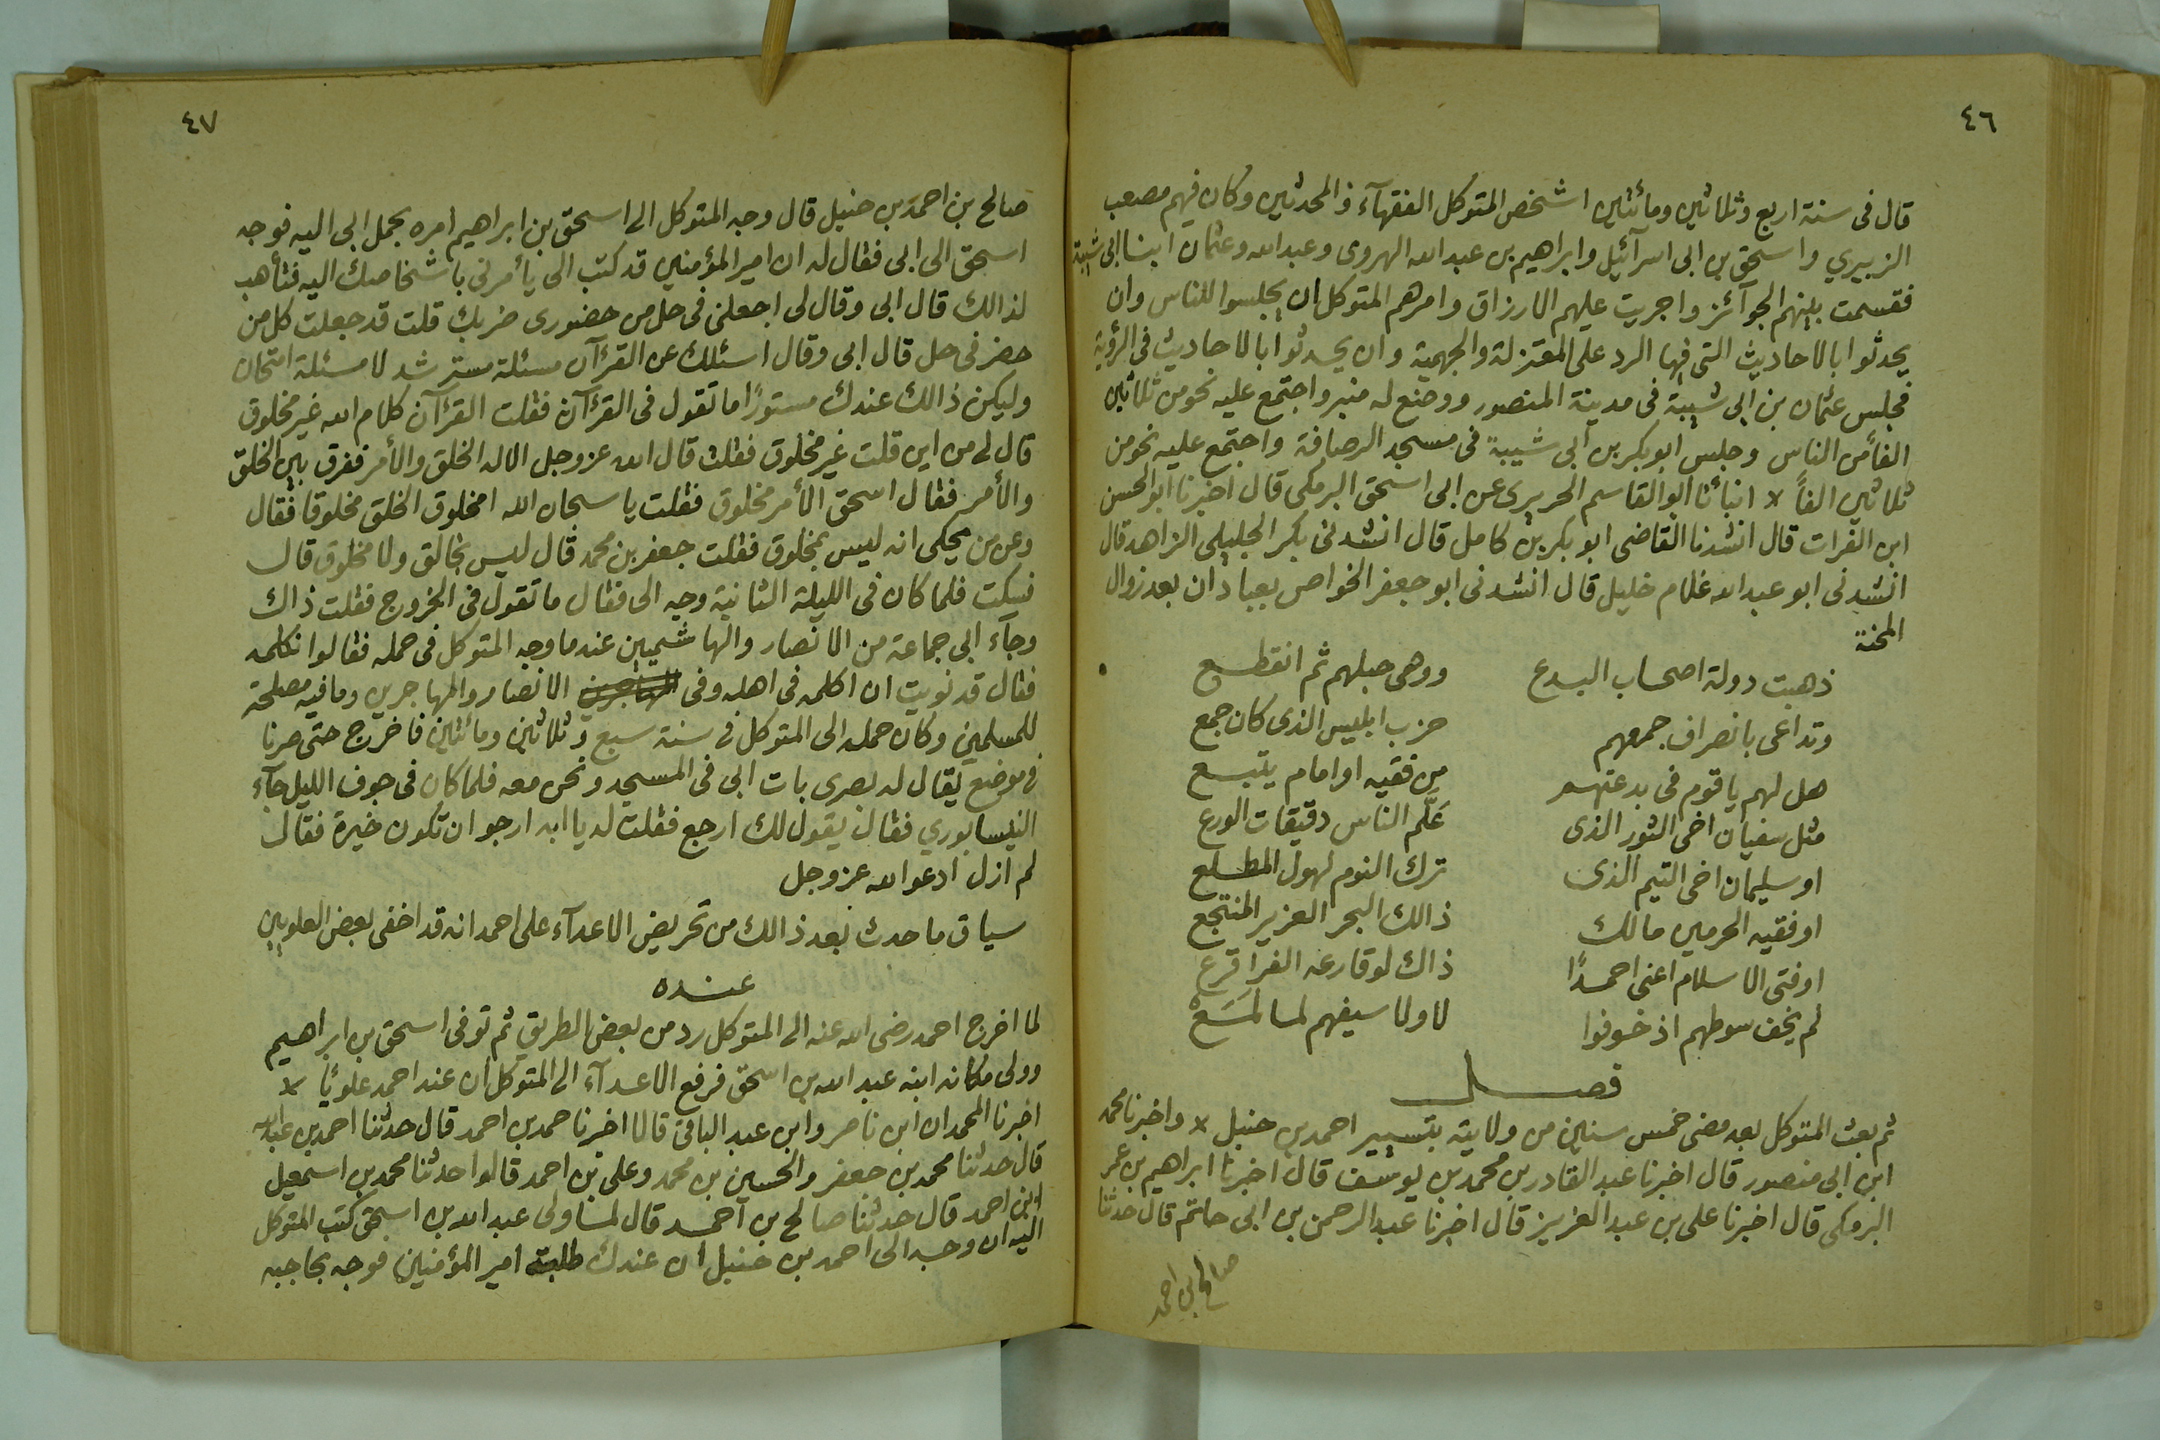 ٤٦
قال فى سنة اربع وثلاثين ومائتين اشخص المتوكل الفقهآء والمحدثين وكان فيهم مصعب
الزبيري واسحق بن ابى اسرآئيل وابراهيم بن عبد الله الهروى وعبد الله وعثمان ابنا ابى شيبة
فقسمت بينهم الجوآئز واجريت عليهم الارزاق وامرهم المتوكل ان يجلسوا للناس وان
يحدثوا بالاحاديث التى فيها الرد على المعتزلة والجهمية وان يحدثوا بالاحاديث فى الرؤية
فجلس عثمان بن ابى شيبة فى مدينة المنصور ووضع له منبر واجتمع عليه نحو من ثلاثين
الفاً من الناس وجلس ابو بكر بن ابى شيبة فى مسجد الرصافة واجتمع عليه نحو من
ثلاثين الفاً لا انبأنا ابو القاسم الحريرى عن ابى اسحق البرمكى قال اخبرنا ابو الحسن
ابن الفرات قال انشدنا القاضى ابو بكر بن كامل قال انشدنى بكر الجليلى الزاهد قال
انشدنى ابو عبد الله غلام خليل قال انشدنى ابو جعفر الخواص بعبادان بعد زوال
المحنة
ذهبت دولة اصحاب البدع ووهى حبلهم ثم انقطع
وتداعى بانصراف جمعهم حزب ابليس الذى كان جمع
هل لهم يا قوم فى بدعتهم من فقيه او امام يتبع
مثل سفيان اخى الثور الذى عَلَّم الناس دقيقات الورع
او سليمان اخى التيم الذى ترك النوم لهول المطلع
او فقيه الحرمين مالك ذالك البحر العزير المنتجع
او فتى الاسلام اعنى احمدًا ذاك لو قارعه القرا قرع
لم يخف سوطهم اذ خوفوا لا ولا سيفهم لما لَمَعْ
فصل
ثم بعث المتوكل بعد مضى خمس سنين من ولايته بتسيير احمد بن حنبل لا واخبرنا محمد
ابن ابى منصور قال اخبرنا عبد القادر بن محمد بن يوسف قال اخبرنا ابراهيم بن عمر
البرمكى قال اخبرنا على بن عبد العزيز قال اخبرنا عبد الرحمن بن ابى حاتم قال حدثنا
صالح بن احمد
٤٧
صالح بن احمد بن حنبل قال وجه المتوكل الى اسحق بن ابراهيم امره بحمل ابى اليه فوجه
اسحق الى ابى فقال له ان امير المؤمنين قد كتب الى يأمرنى باشخاصك اليه فتأهب
لذالك قال ابى وقال لى اجعلنى فى حل من حضورى ضربك قلت قد جعلت كل من
حضر فى حل قال ابى وقال اسئلك عن القرءآن مسئلة مسترشد لا مسئلة امتحان
وليكن ذالك عندك مستورًا ما تقول فى القرءآن فقلت القرءآن كلام الله غير مخلوق
قال لى من اين قلت غير مخلوق فقلت قال الله عز وجل الا له الخلق والأمر ففرق بين الخلق
والأمر فقال اسحق الأمر مخلوق فقلت يا سبحان الله امخلوق الخلق مخلوقا فقال
وعن من يحكى انه ليس بمخلوق فقلت جعفر بن محمد قال ليس بخالق ولا مخلوق قال
فسكت فلما كان فى الليلة الثانية وجه الى فقال ما تقول فى الخروج فقلت ذاك
وجآء ابى جماعة من الانصار والهاشميين عندما وجه المتوكل فى حمله فقالوا نكلمه
فقال قد نويت ان اكلمه فى اهله وفى المهاجرين الانصار والمهاجرين وما فيه مصلحة
للمسلمين وكان حمله الى المتوكل فى سنة سبع وثلاثين ومائتين فاخرج حتى صرنا
فى موضع يقال له بصرى بات ابى فى المسجد ونحن معه فلما كان فى جوف الليل جآء
النيسابوري فقال يقول لك ارجع فقلت له يا ابه ارجو ان تكون خيرة فقال
لم ازل ادعو الله عز وجل
سياق ما حدث بعد ذالك من تحريض الاعدآء على احمد انه قد اخفى بعض العلويين
عنده
لما اخرج احمد رضى الله عنه الى المتوكل رد من بعض الطريق ثم توفى اسحق بن ابراهيم
وولى مكانه ابنه عبد الله بن اسحق فرفع الاعدآء الى المتوكل ان عند احمد علويًا لا
اخبرنا المحمدان ابن ناصر وابن عبد الباقى قالا اخبرنا حمد بن احمد قال حدثنا احمد بن عبد الله
قال حدثنا محمد بن جعفر والحسين بن محمد وعلى بن احمد قالوا حدثنا محمد بن اسمعيل
ابن احمد قال حدثنا صالح بن احمد قال لما ولى عبد الله بن اسحق كتب المتوكل
اليه ان وجه الى احمد بن حنبل ان عندك طلبة امير المؤمنين فوجه بحاجبه